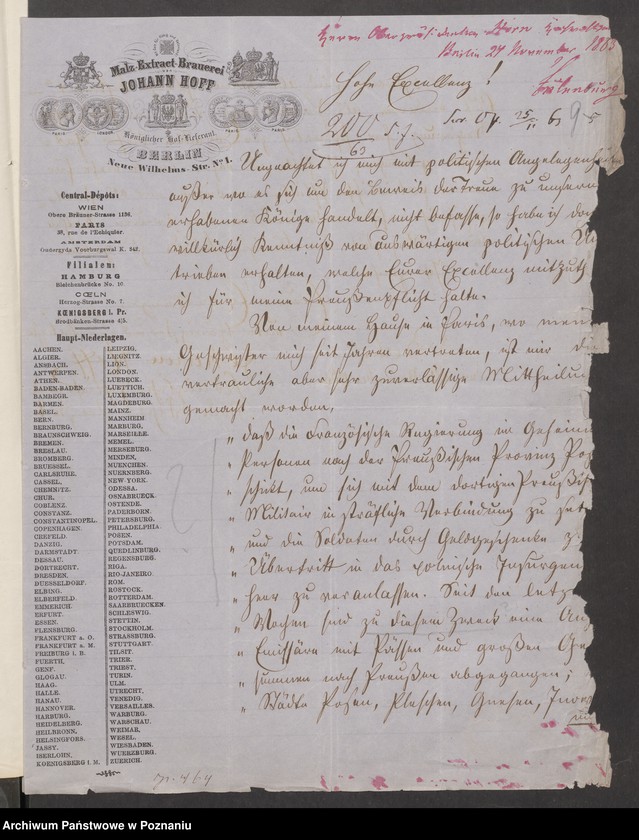 Herrn Oberpräsidenten Horn
Berlin 27 November 1863
Eulenburg
Malz-Extract-Brauerei
JOHANN HOFF
PARIS. LONDON. PARIS.
Königlicher Hof-Lieferant.
BERLIN
Neue Wilhelms-Str. No 1.
Hohe Excellenz!
200
63
9
Ungeachtet ich mich mit politischen Angelegenheiten
außer wo es sich um den Beweis der Treue zu unserm
erhabenen Könige handelt, nicht befasse, so habe ich
willkürlich Kenntniß von auswärtigen politischen
trieben erhalten, welche Eurer Excellenz
ich für meine Preußenpflicht halte.
Von meinem Hause in Paris, wo
Geschwister mich seit Jahren vertreten, ist mir
vertrauliche aber sehr zuverlässige
gemacht worden,
„ daß die Französische Regierung in
„ Personen nach der Preußischen Provinz
„ schickt, um sich mit dem dortigen
„ Militair in sträfliche Verbindung zu
„ und die Soldaten durch Geldgeschenke
„ Übertritt in das polnische
„ heer zu veranlassen. Seit den
„ Wochen sind zu diesem Zweck eine
„ Emissäre mit Pässen und großen
„ summen nach Preußen abgegangen;
„ Städte Posen, Pleschen, Gnesen,
Central-Depôts:
WIEN
Obere Bräuner-Strasse 1136.
PARIS
38, rue de l'Echiquier.
AMSTERDAM
Oudezyds Voorburgwal K. 242.
Filialen:
HAMBURG
Bleichenbrücke No. 10.
CŒLN
Herzog-Strasse No. 7.
KŒNIGSBERG i. Pr.
Brodbänken-Strasse 4/5.
Haupt-Niederlagen.
AACHEN.
ALGIER.
ANSBACH.
ANTWERPEN.
ATHEN.
BADEN-BADEN.
BAMBERG.
BARMEN.
BASEL.
BERN.
BERNBURG.
BRAUNSCHWEIG.
BREMEN.
BRESLAU.
BROMBERG.
BRUESSEL.
CARLSRUHE.
CASSEL.
CHEMNITZ.
CHUR.
COBLENZ.
CONSTANZ.
CONSTANTINOPEL.
COPENHAGEN.
CREFELD.
DANZIG.
DARMSTADT.
DESSAU.
DORTRECHT.
DRESDEN.
DUESSELDORF.
ELBING.
ELBERFELD.
EMMERICH.
ERFURT.
ESSEN.
FLENSBURG.
FRANKFURT a. O.
FRANKFURT a. M.
FREIBURG i. B.
FUERTH.
GENF.
GLOGAU.
HAAG.
HALLE.
HANAU.
HANNOVER.
HARBURG.
HEIDELBERG.
HEILBRONN.
HELSINGFORS.
JASSY.
ISERLOHN.
KOENIGSBERG i. M.
LEIPZIG.
LIEGNITZ.
LION.
LONDON.
LUEBECK.
LUETTICH.
LUXEMBURG.
MAGDEBURG.
MAINZ.
MANNHEIM
MARBURG.
MARSEILLE.
MEMEL.
MERSEBURG.
MINDEN.
MUENCHEN.
NUERNBERG.
NEW YORK.
ODESSA.
OSNABRUECK.
OSTENDE.
PADERBORN.
PETERSBURG.
PHILADELPHIA.
POSEN.
POTSDAM.
QUEDLINBURG.
REGENSBURG.
RIGA.
RIO-JANEIRO.
ROM.
ROSTOCK.
ROTTERDAM.
SAARBRUECKEN.
SCHLESWIG.
STETTIN.
STOCKHOLM.
STRASSBURG.
STUTTGART.
TILSIT.
TRIER.
TRIEST.
TURIN.
ULM.
UTRECHT.
VENEDIG.
VERSAILLES.
WARBURG.
WARSCHAU.
WEIMAR.
WESEL.
WIESBADEN.
WUERZBURG.
ZUERICH.
Archiwum Państwowe w Poznaniu